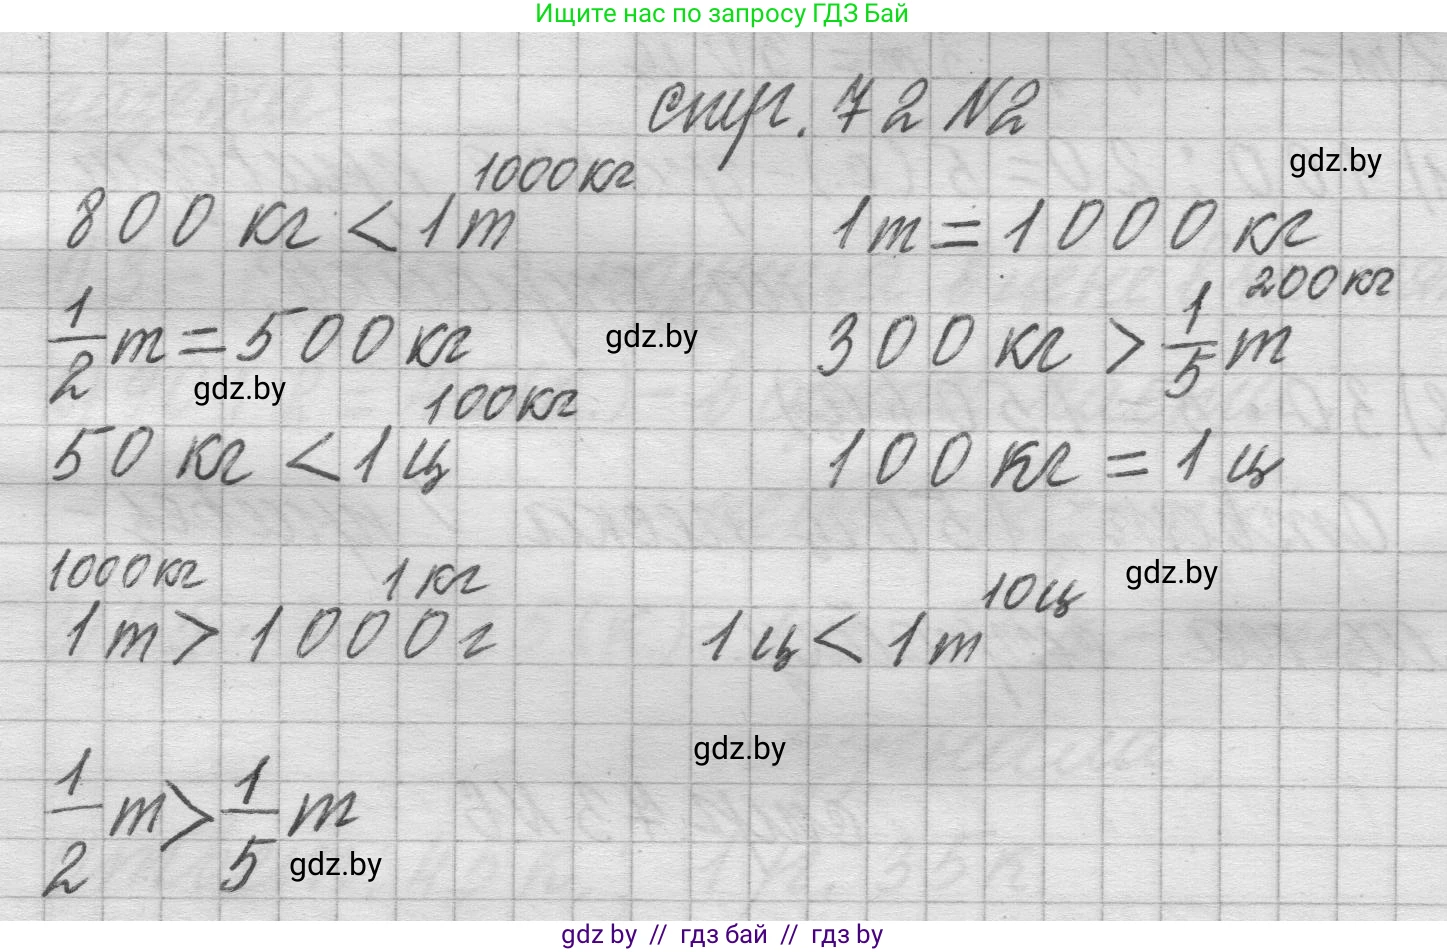 Ищите нас по запросу ГДЗ Бай
стр. 72 №2
gdz.by
1000кг
800 кг < 1т
1т = 1000 кг
200кг
1/2 т = 500 кг
gdz.by
300 кг > 1/5 т
gdz.by
100кг
50 кг < 1 ц
100 кг = 1 ц
1000кг 1 кг
1т > 1000г
gdz.by
10ц
1 ц < 1т
gdz.by
1/2 т > 1/5 т
gdz.by
gdz by // гдз бай // гдз by